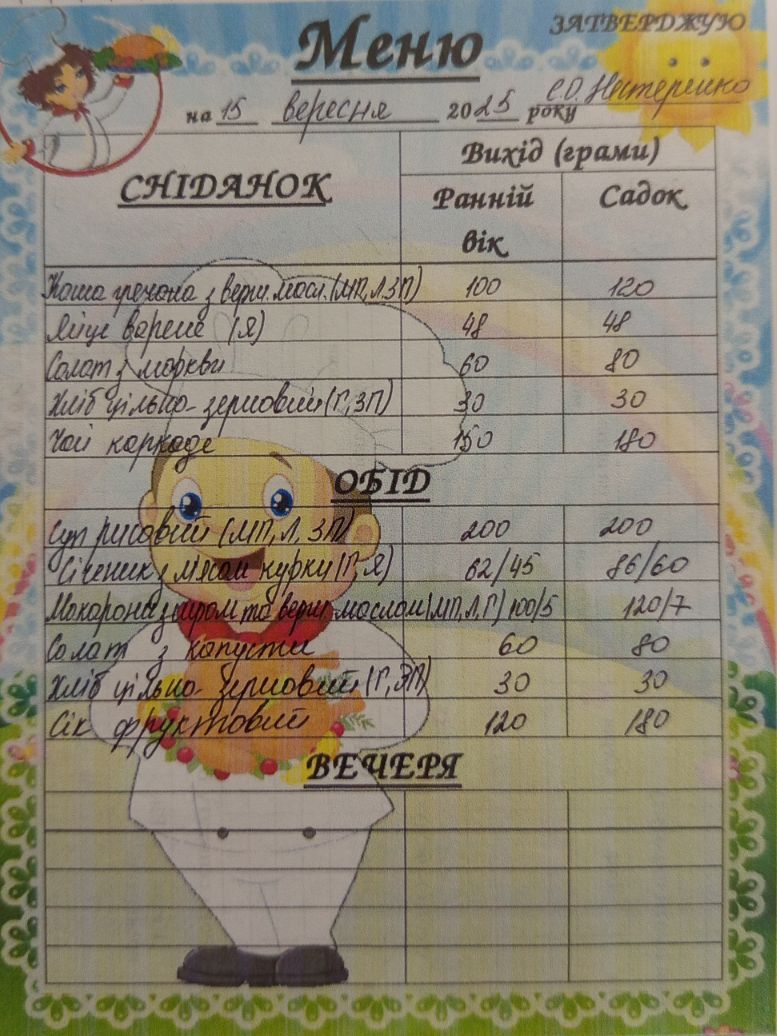 ЗАТВЕРДЖУЮ
Меню
на 15 вересня 2025 року
С.О. Нестеренко
СНІДАНОК
Вихід (грами)
Ранній вік
Садок
Каша гречана з верш. масл. (МП, Л, ЗП) 100 120
Яйце варене (Я) 48 48
Салат з моркви 60 80
Хліб цільно-зерновий (Г, ЗП) 30 30
Чай каркаде 150 180
ОБІД
Суп рисовий (МП, Л, ЗП) 200 200
Січеник з мясом курки (Г, Я) 62/45 86/60
Макарони з сиром та верш. маслом (МП, Л, Г) 100/5 120/7
Салат з капусти 60 80
Хліб цільно-зерновий (Г, ЗП) 30 30
Сік фруктовий 120 180
ВЕЧЕРЯ